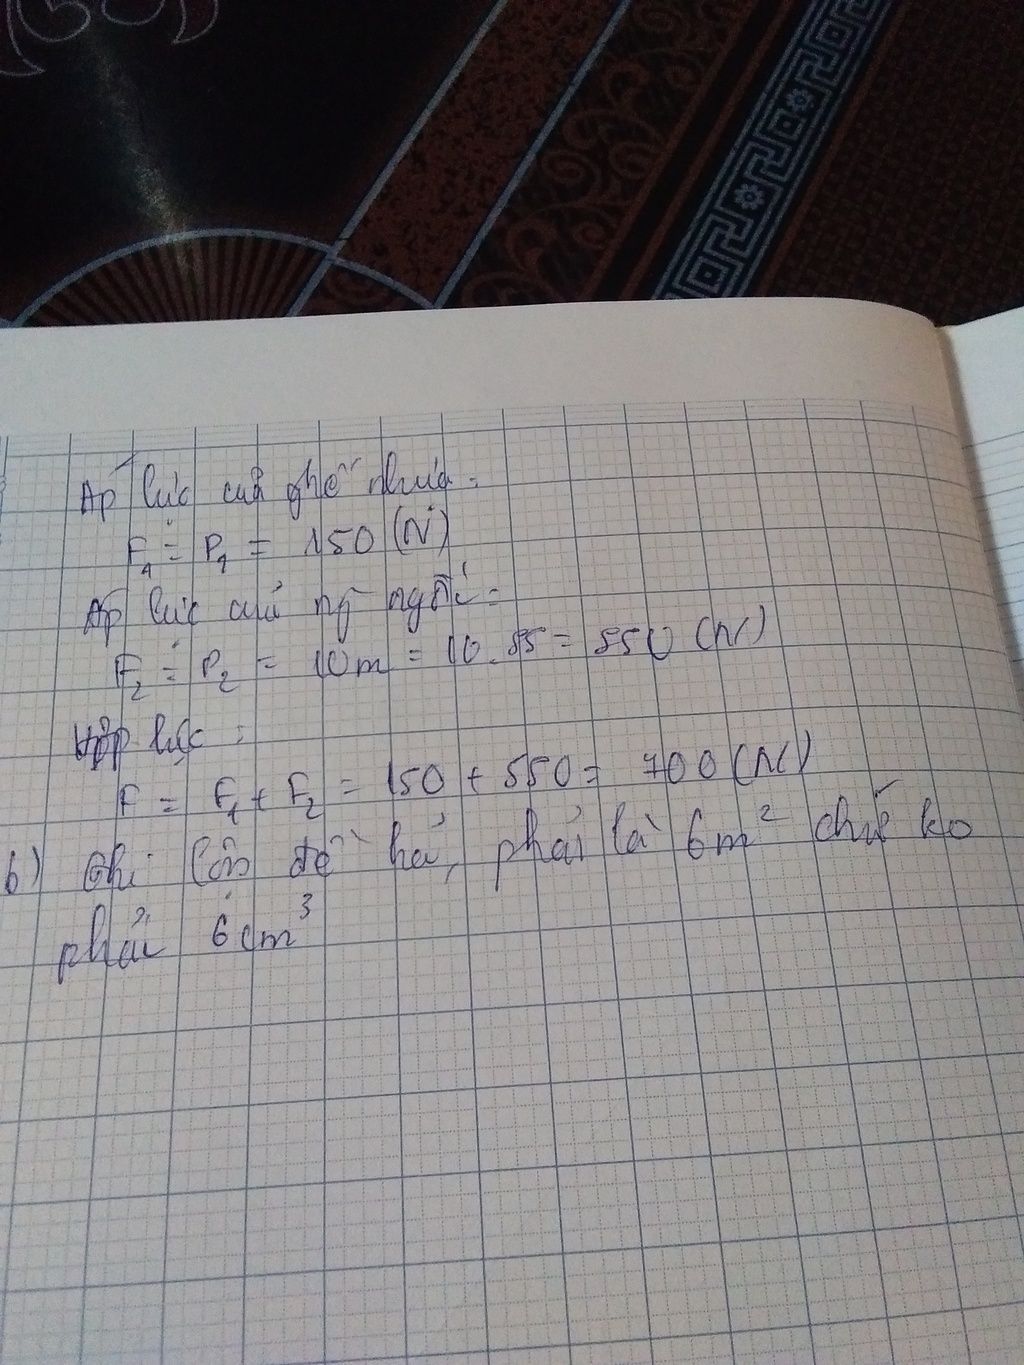 Áp lực của ghế nhựa:
F₁ = P₁ = 150 (N)
Áp lực của ng ngồi:
F₂ = P₂ = 10m = 10.55 = 550 (N)
Hợp lực:
F = F₁ + F₂ = 150 + 550 = 700 (N)
b) Ghi lộn đề hả, phải là 6m² chứ ko
phải 6cm³